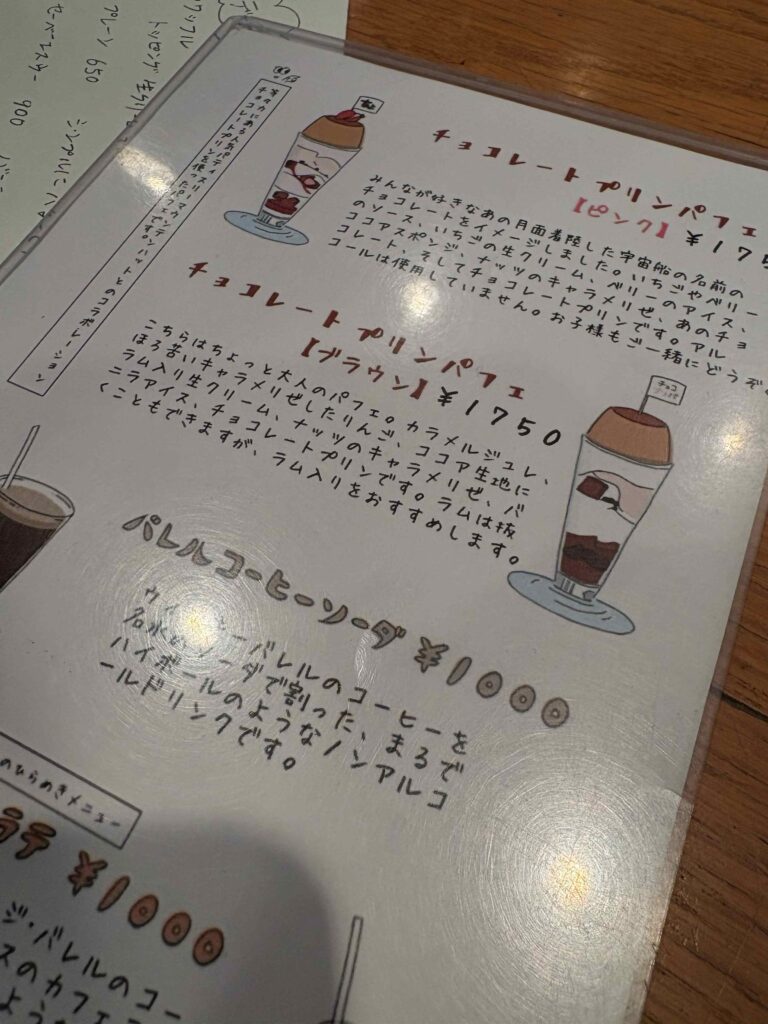 ワッフル
プレーン 650
900
チョコレートプリンパフェ
【ピンク】 ¥175
みんなが好きなあの月面着陸した宇宙船の名前の
チョコレートをイメージしました。いちごやベリー
のソース、いちごの生クリーム、ベリーのアイス、
ココアスポンジ、ナッツのキャラメリゼ、あのチョ
コレート、そしてチョコレートプリンです。アル
コールは使用していません。お子様もご一緒にどうぞ。
チョコレートプリンパフェ
【ブラウン】 ¥1750
こちらはちょっと大人のパフェ。カラメルジュレ、
ほろ苦いキャラメリゼしたりんご、ココア生地に
ラム入り生クリーム、ナッツのキャラメリゼ、バ
ニラアイス、チョコレートプリンです。ラムは抜
くこともできますが、ラム入りをおすすめします。
チョコ
バレルコーヒーソーダ ¥1000
バレルのコーヒーを
ソーダで割った、まるで
ハイボールのようなノンアルコ
ールドリンクです。
のひらめきメニュー
ラテ ¥1000
ジ・バレルのコー
スのカフェ